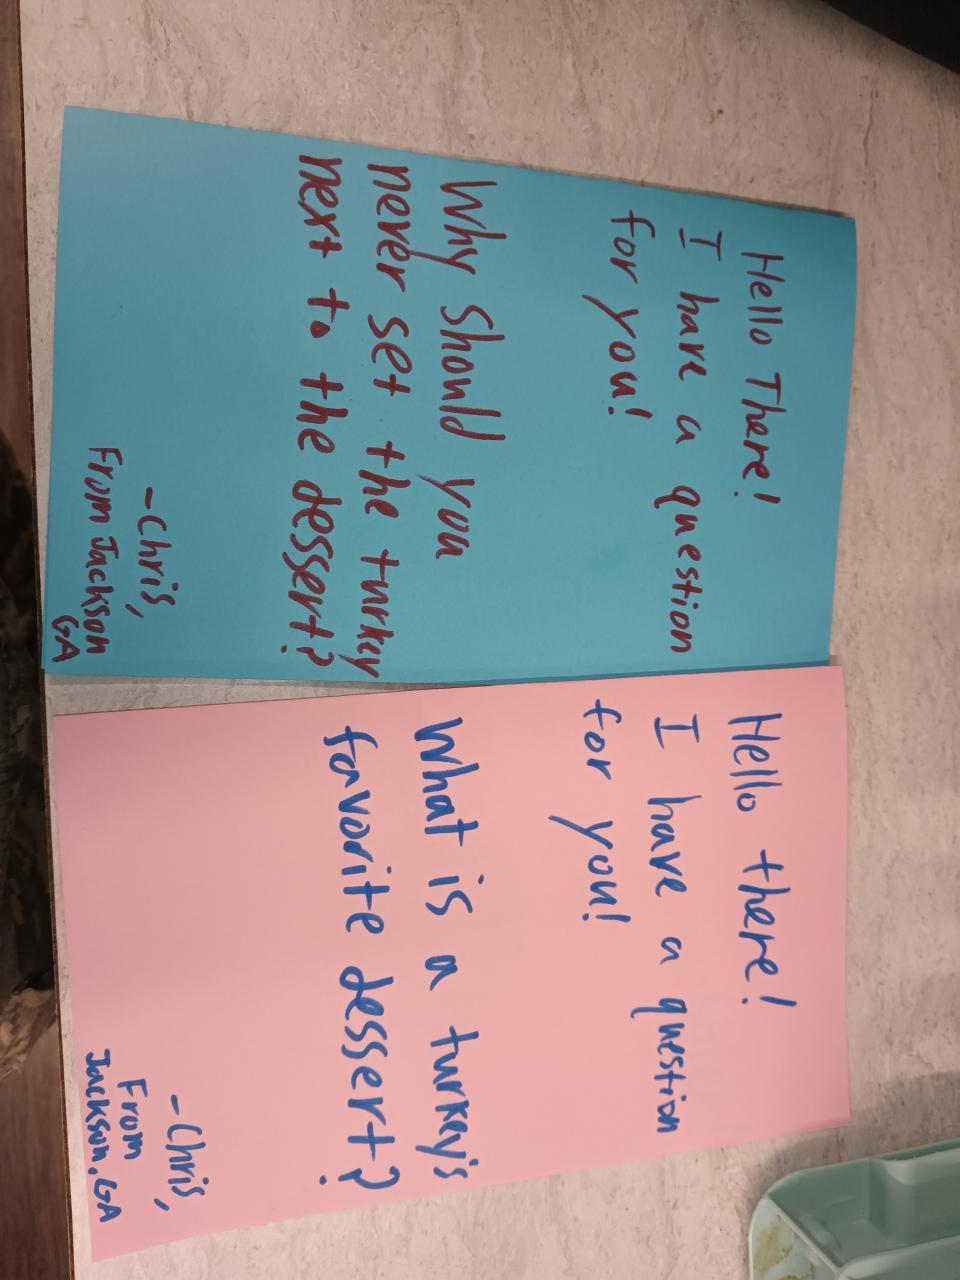 Hello There!
I have a question
for you!
Why should you
never set the turkey
next to the dessert?
-Chris,
From Jackson
GA
Hello there!
I have a question
for you!
What is a turkey's
favorite dessert?
-Chris,
From
Jackson, GA